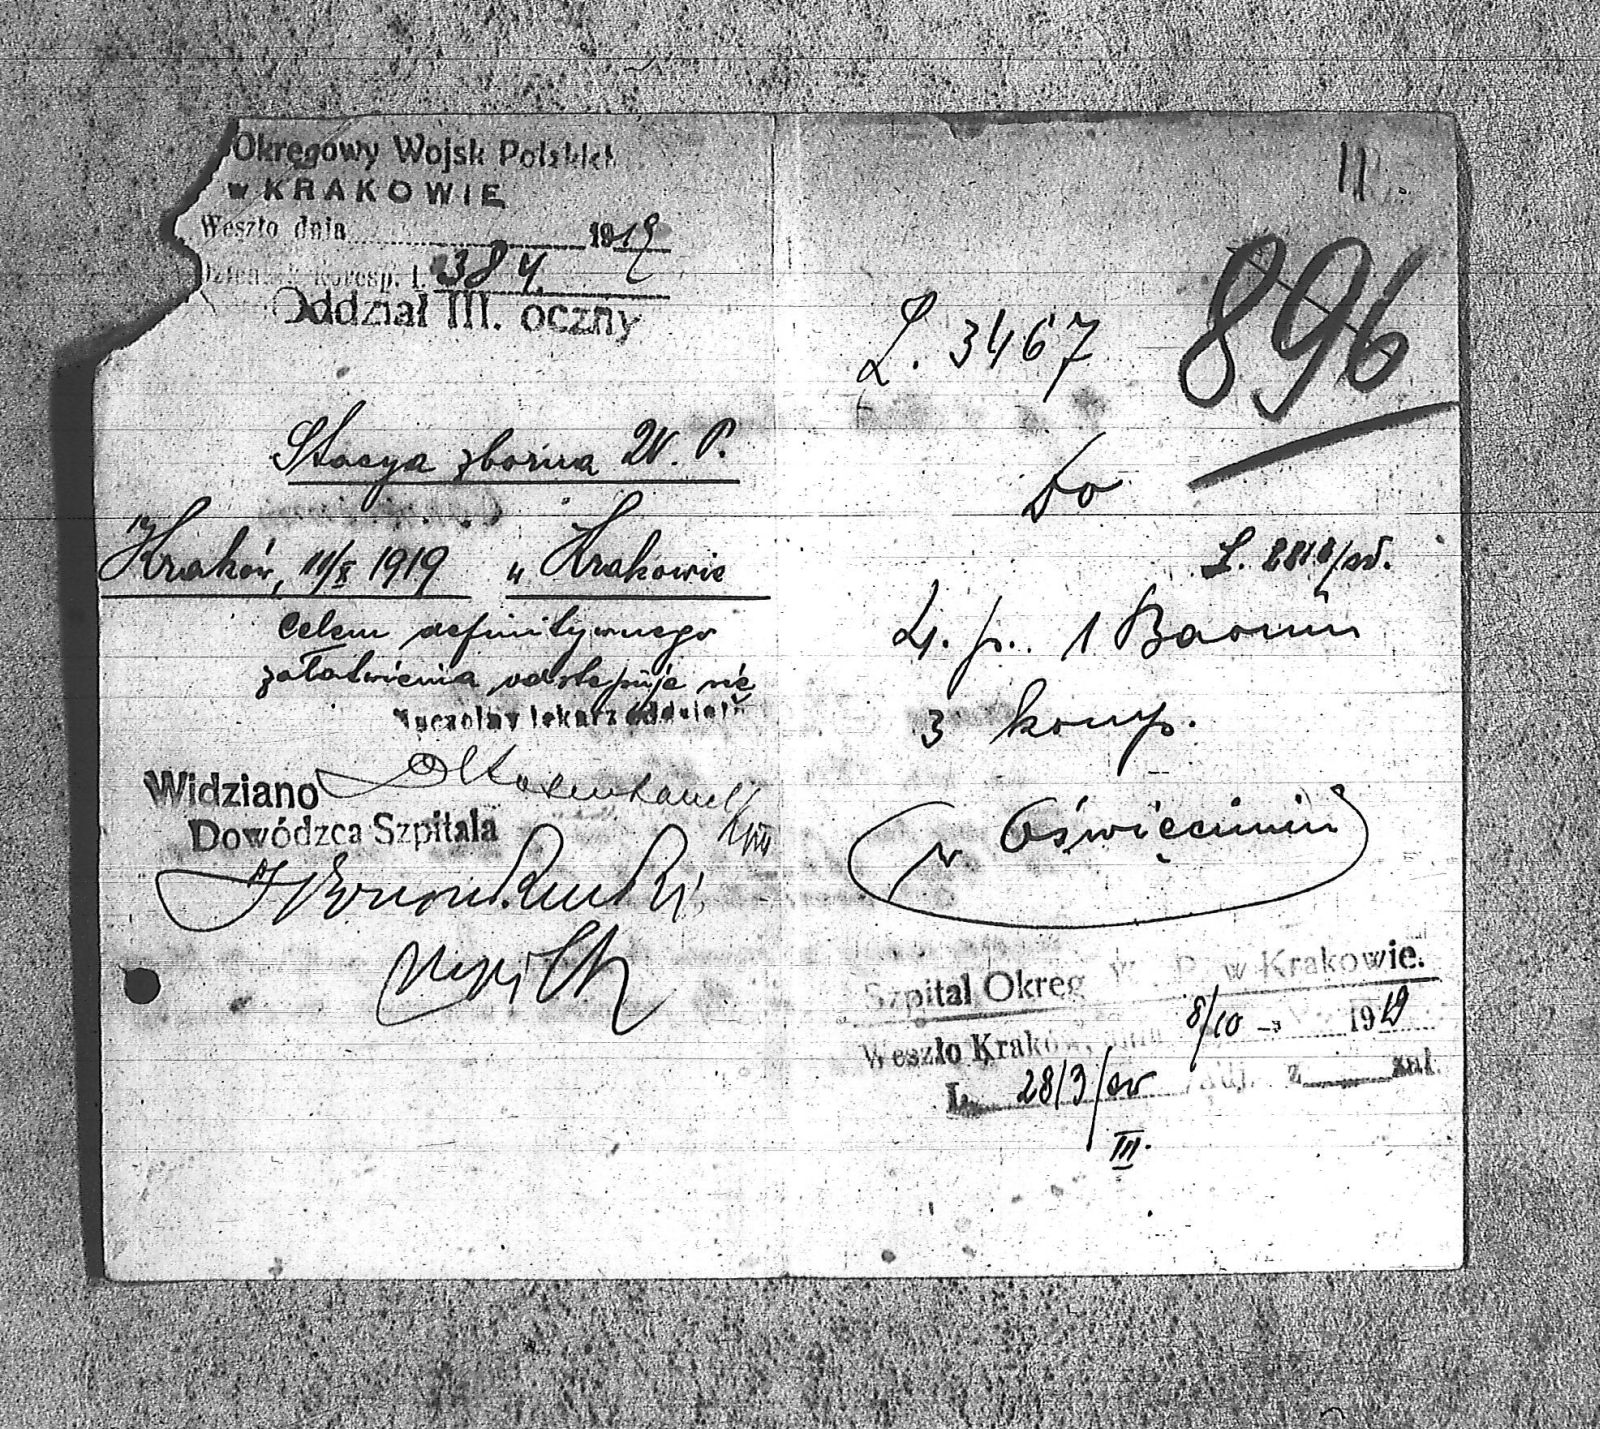 Okręgowy Wojsk Polskich
w KRAKOWIE
Weszło dnia 1919
koresp. l. 384.
Oddział III. oczny
Stacya zborna W. P.
Kraków, 11/X 1919 w Krakowie
Celem definitywnego
załatwienia odstępuje się
Naczelny lekarz oddziału
Widziano
Dowódzca Szpitala
11
896
L. 3467
Do
4. p. 1 Baonu
3 komp.
w Oświęcimiu
Szpital Okręg W. P. w Krakowie.
Weszło Kraków, dnia 8/10 1919
L. 2813/sv zał.
III.